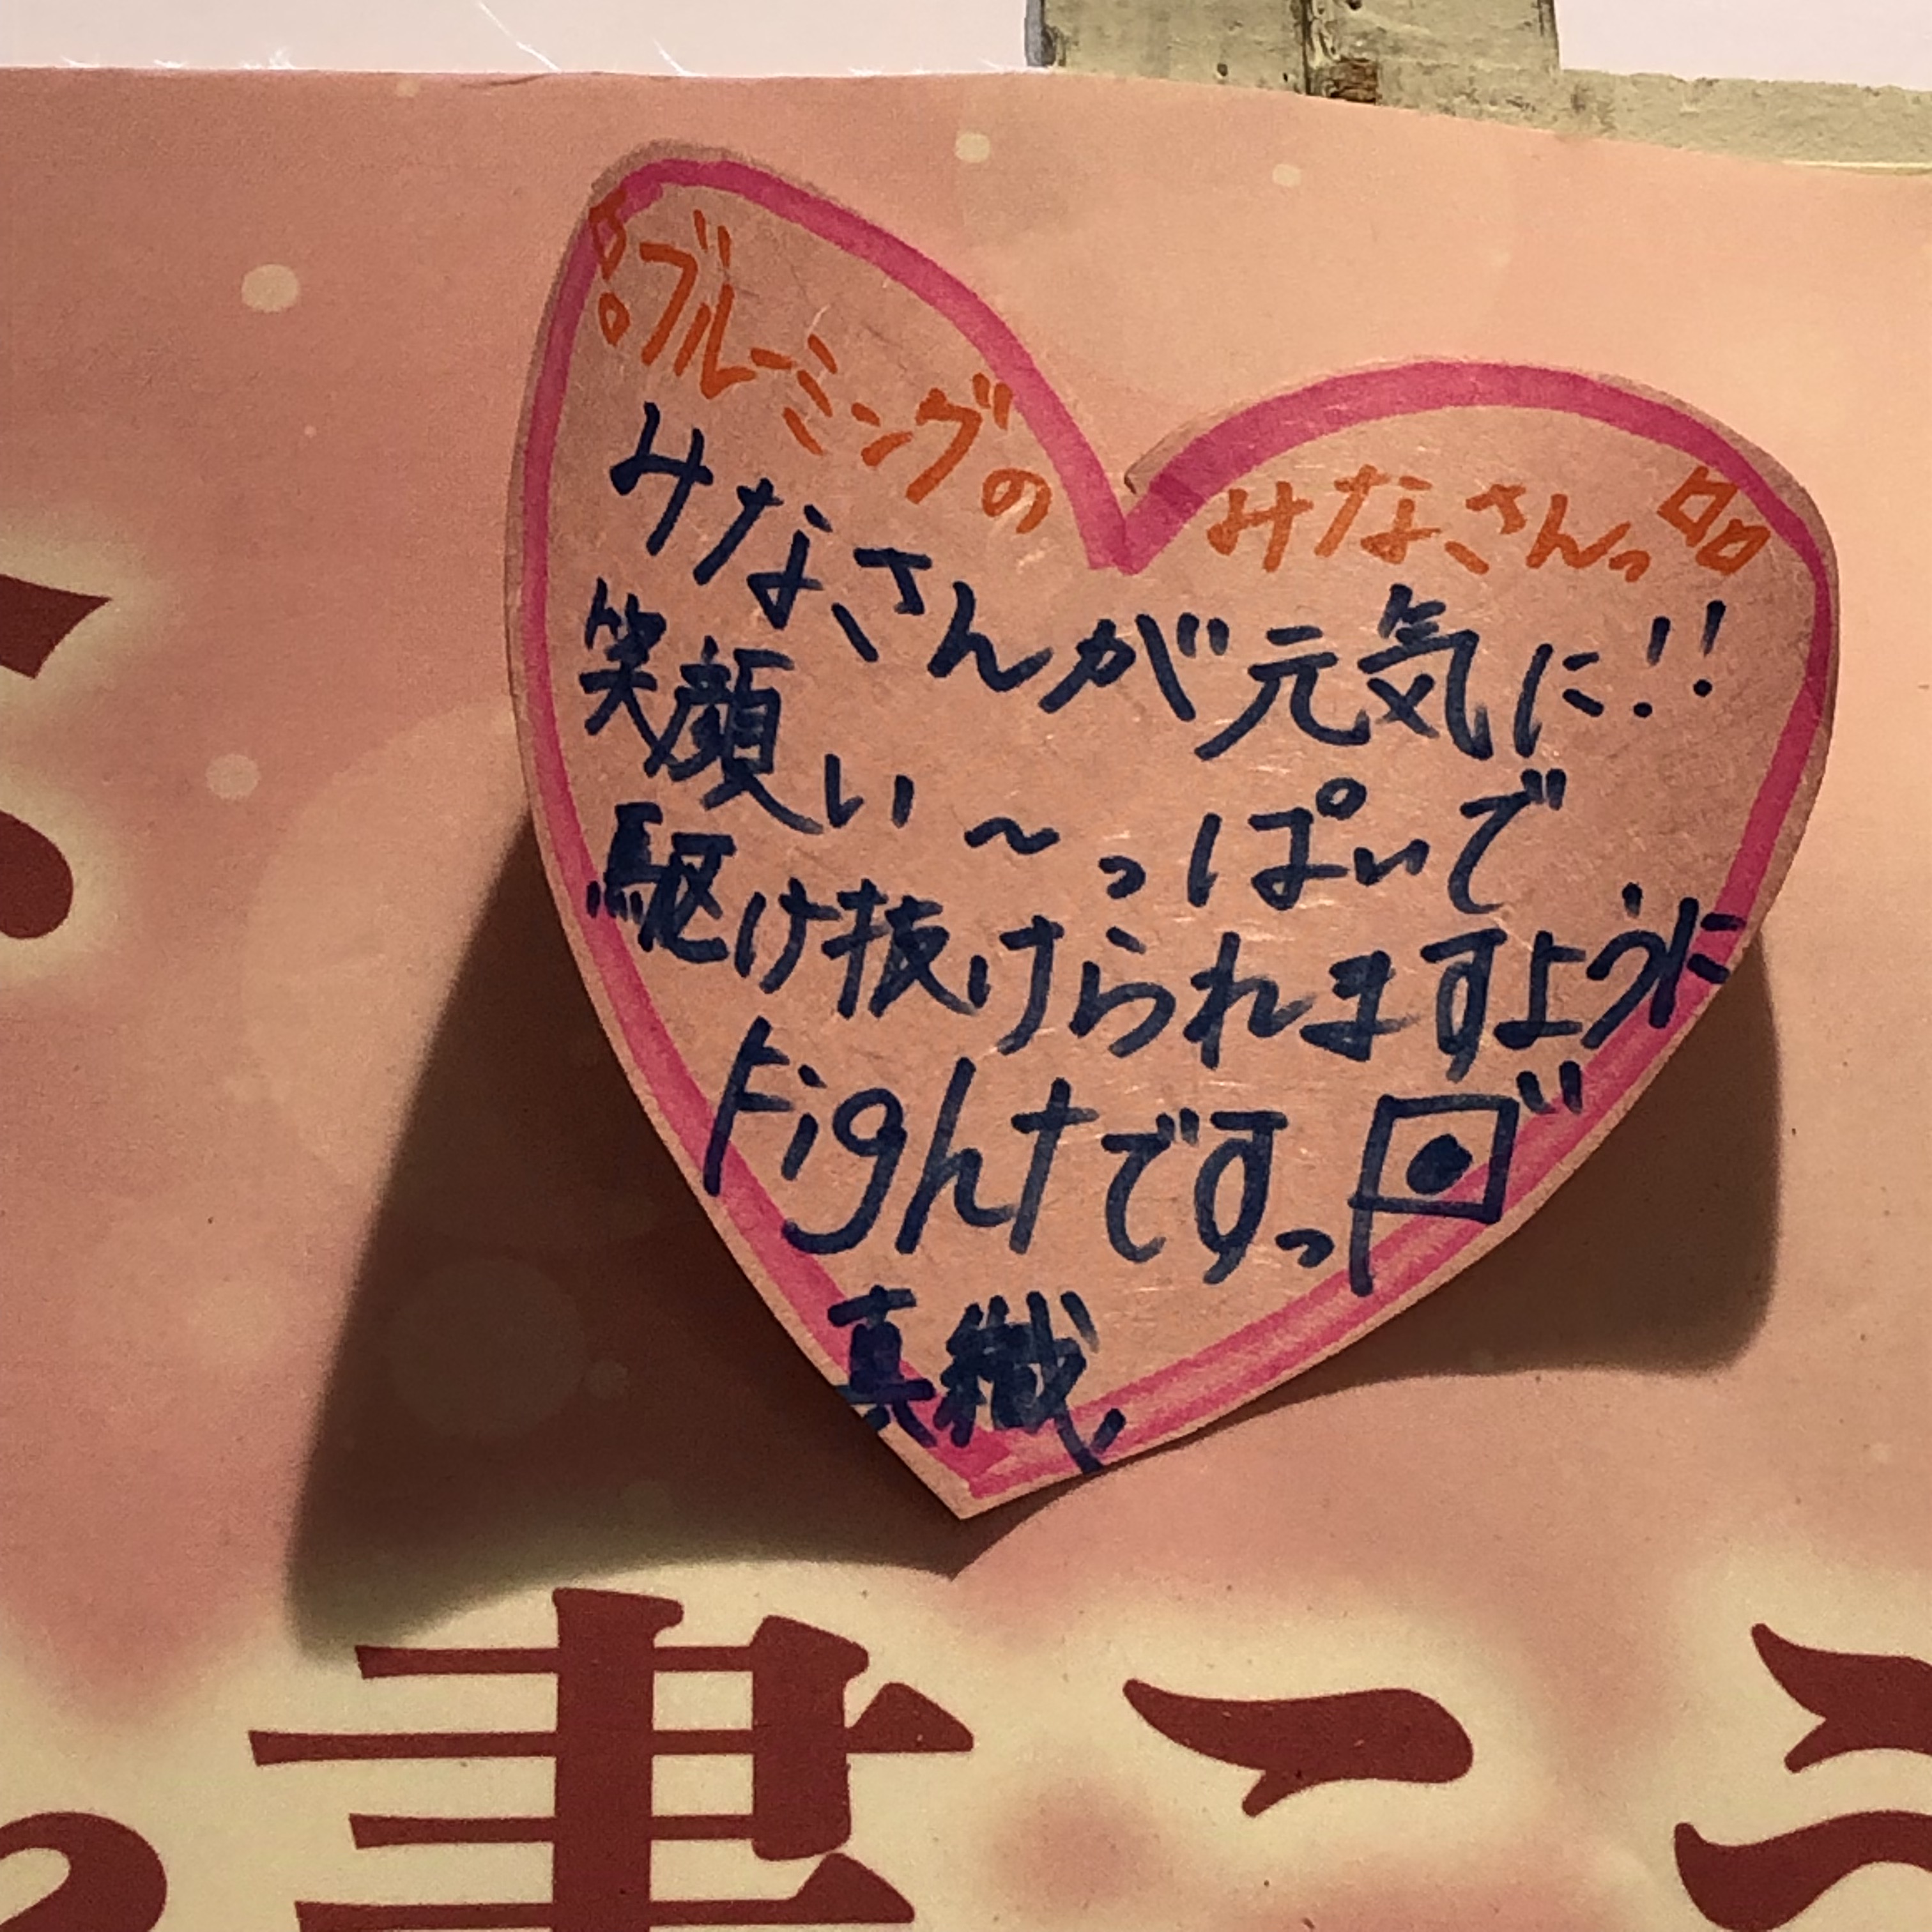 ブルーミングの
みなさんっ
みなさんが元気に!!
笑顔い〜っぱいで
駆け抜けられますように
Fightですっ
真織
書こう